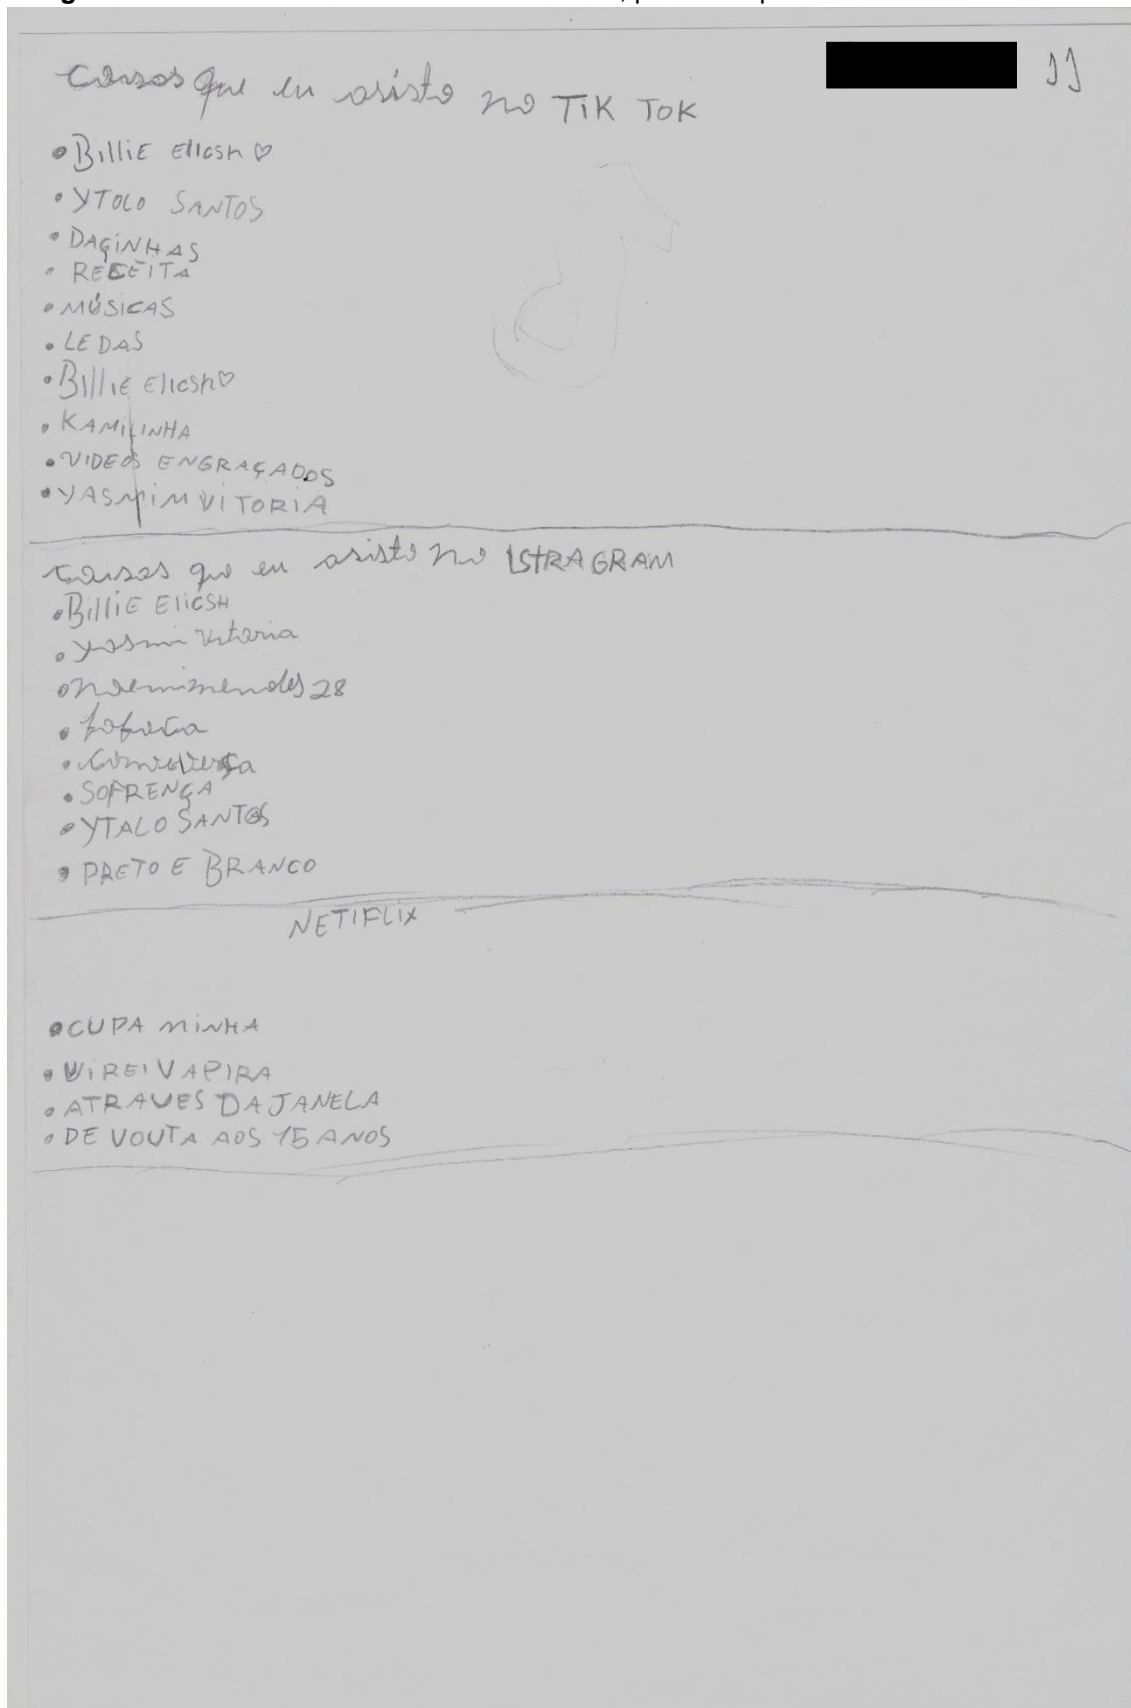 11
Coisas que eu asisto no TiK TOK
• BilliE Elicsh ♡
• YTOLO SANTOS
• DAÇiNHAS
• RECEITA
• MÚSICAS
• LEDAS
• BilliE Elicsh ♡
• KAMILINHA
• VIDEOS ENGRAÇADOS
• YASMIM VITORIA
Coisas que eu asisto no ISTRAGRAM
• BilliE EliCSH
• Yasmi Vitoria
• noemimendes 28
• fofoca
• SOFRENÇA
• YTALO SANTOS
• PRETO E BRANCO
NETIFLIX
• CUPA MiNHA
• ViREI VAPIRA
• ATRAVES DA JANELA
• DE VOUTA AOS 15 ANOS